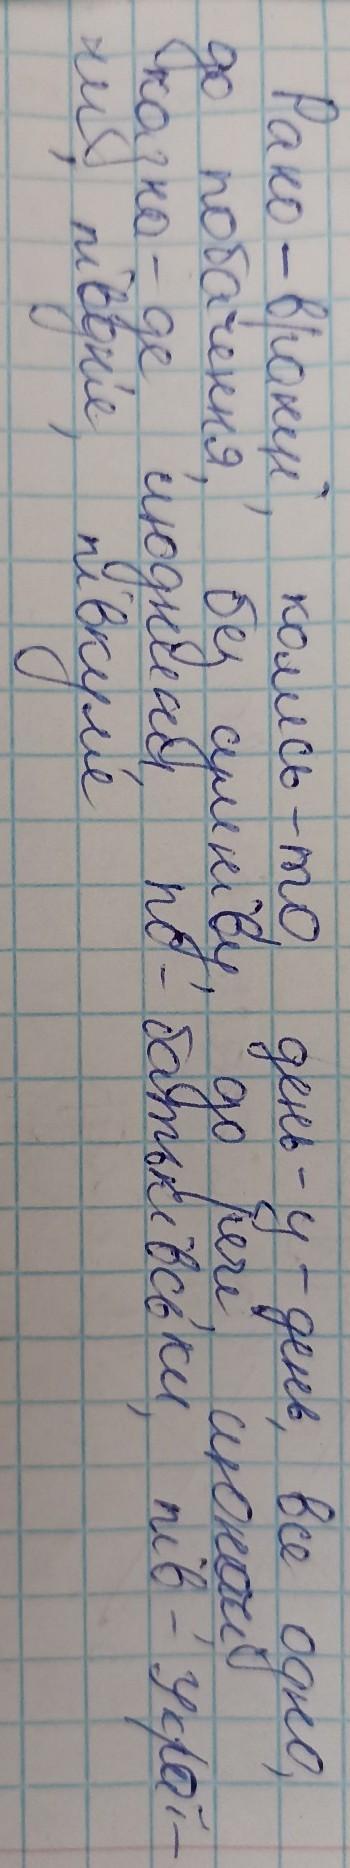 Рано-вранці, колись-то день-у-день, все одно,
до побачення, без сумніву, до речі щоночі
казна-де щодвечір, по-батьківськи, пів-Украї-
ни, південне, півкуля